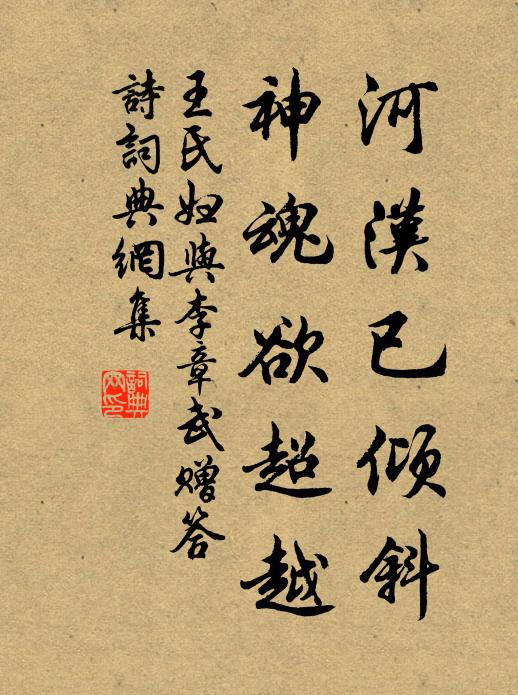 河漢已傾斜
神魂欲超越
王氏婦與李章武贈答
詩詞典網集
詞典網印